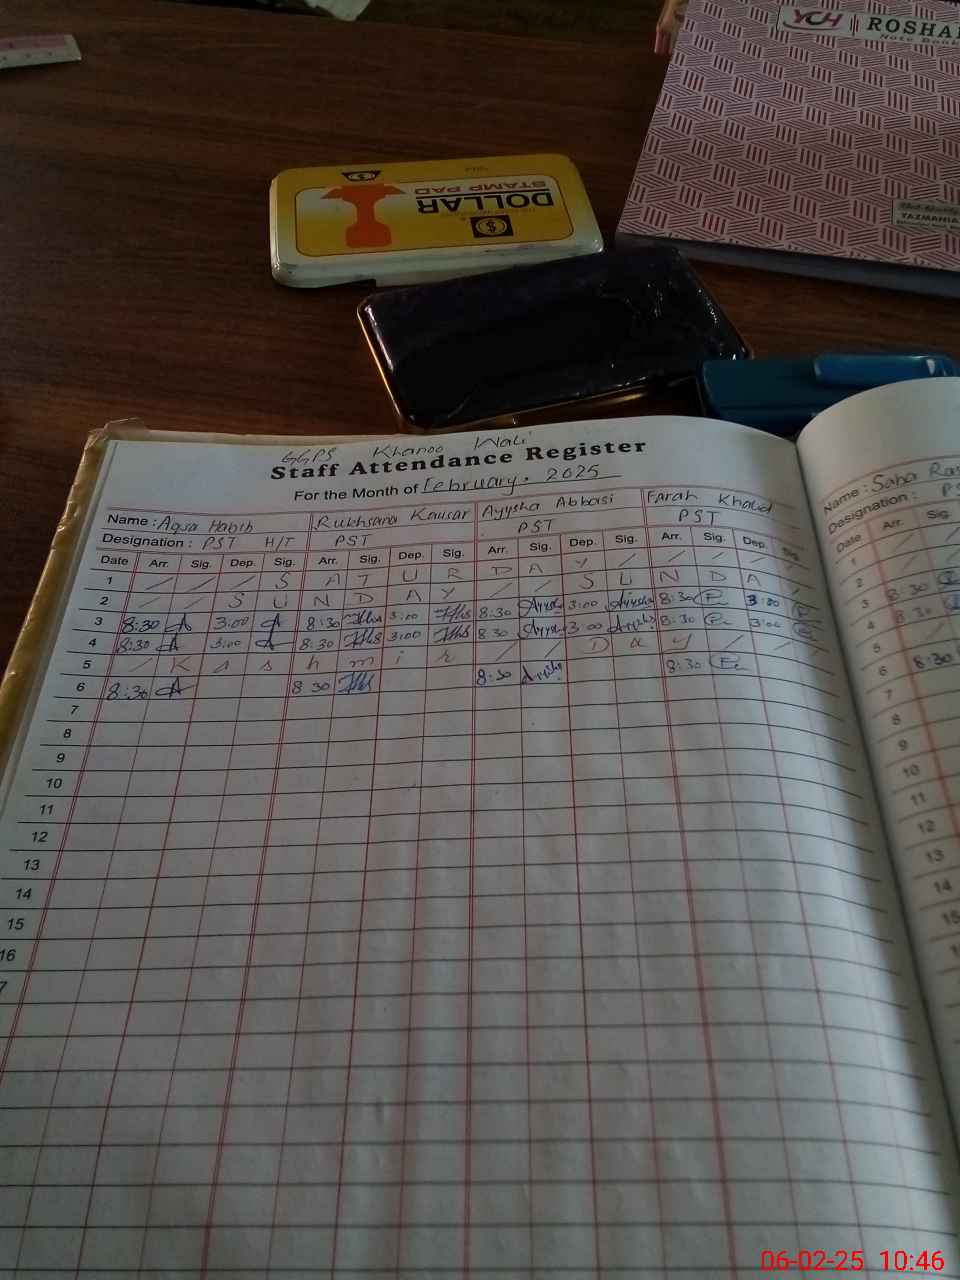 YCH ROSHAN
Note Book
YAZMANIA
DOLLAR
STAMP PAD
GGPS Khanoo Wali
Staff Attendance Register
For the Month of February. 2025
Name : Aqsa Habib Rukhsana Kausar Ayysha Abbasi Farah Khalid
Designation : PST H/T PST PST PST
Date Arr. Sig. Dep. Sig. Arr. Sig. Dep. Sig. Arr. Sig. Dep. Sig. Arr. Sig. Dep. Sig.
1 / / / S A T U R D A Y / / / / /
2 / / S U N D A Y / / S U N D A
3 8:30 A 3:00 A 8:30 3:00 8:30 Ayysha 3:00 Ayysha 8:30 3:00
4 8:30 A 3:00 A 8:30 3:00 8:30 Ayysha 3:00 Ayysha 8:30 3:00
5 / K a s h m i r / / D a y / /
6 8:30 A 8 30 8:30 Ayysha 8:30
7
8
9
10
11
12
13
14
15
16
7
Name : Saba
Designation : PS
Date Arr. Sig.
1
2
3 8 30
4 8:30
5
6 8:30
7
8
9
10
11
12
13
14
15
06-02-25 10:46